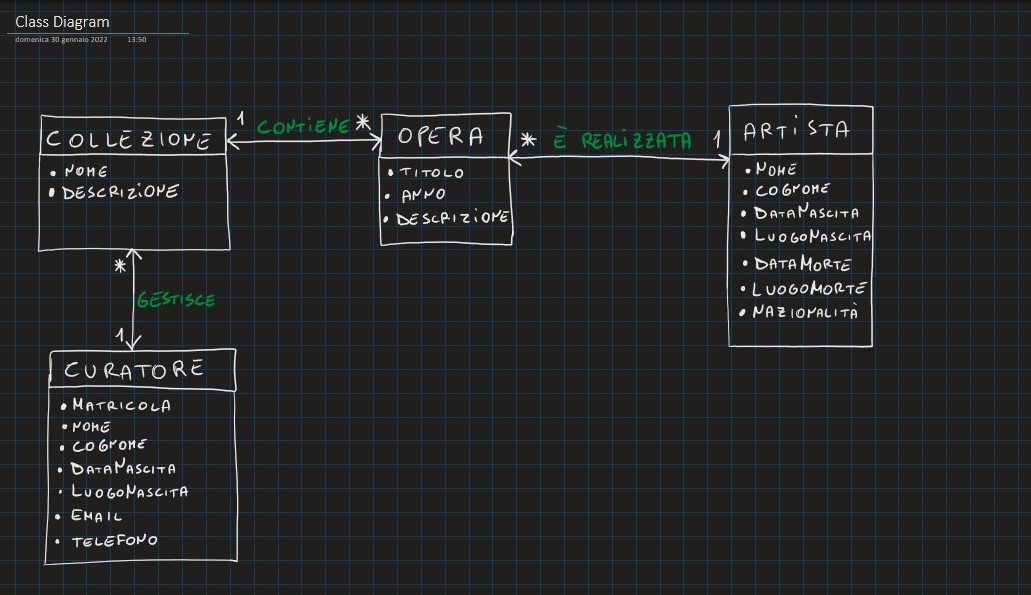 Class Diagram
domenica 30 gennaio 2022 13:50
COLLEZIONE
• NOME
• DESCRIZIONE
1 CONTIENE *
OPERA
• TITOLO
• ANNO
• DESCRIZIONE
* È REALIZZATA 1
ARTISTA
• NOME
• COGNOME
• DATANASCITA
• LUOGONASCITA
• DATAMORTE
• LUOGOMORTE
• NAZIONALITÀ
*
GESTISCE
1
CURATORE
• MATRICOLA
• NOME
• COGNOME
• DATANASCITA
• LUOGONASCITA
• EMAIL
• TELEFONO